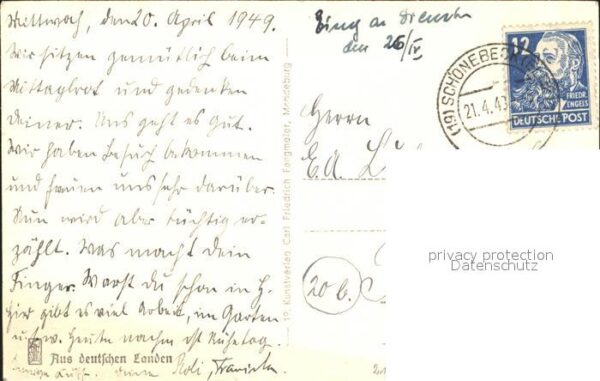 Mittwoch, den 20. April 1949.
Wir sitzen gemütlich beim
Mittagbrot und gedenken
Deiner. Uns geht es gut.
Wir haben Besuch bekommen
und freuen uns sehr darüber.
Nun wird aber tüchtig er-
zählt. Was macht dein
Finger. Warst du schon in H.
Hier gibt es viel Arbeit, im Garten
u.s.w. Heute nachm ist Ruhetag.
Aus deutschen Landen
deine
19. Kunstverlag Carl Friedrich Fangmeier, Magdeburg
Eing an Dienstag
den 26/IV
Herrn
E. A.
20 b.
(19) SCHÖNEBECK (
21.4.49
12
FRIEDR.
ENGELS
DEUTSCHE POST
privacy protection
Datenschutz